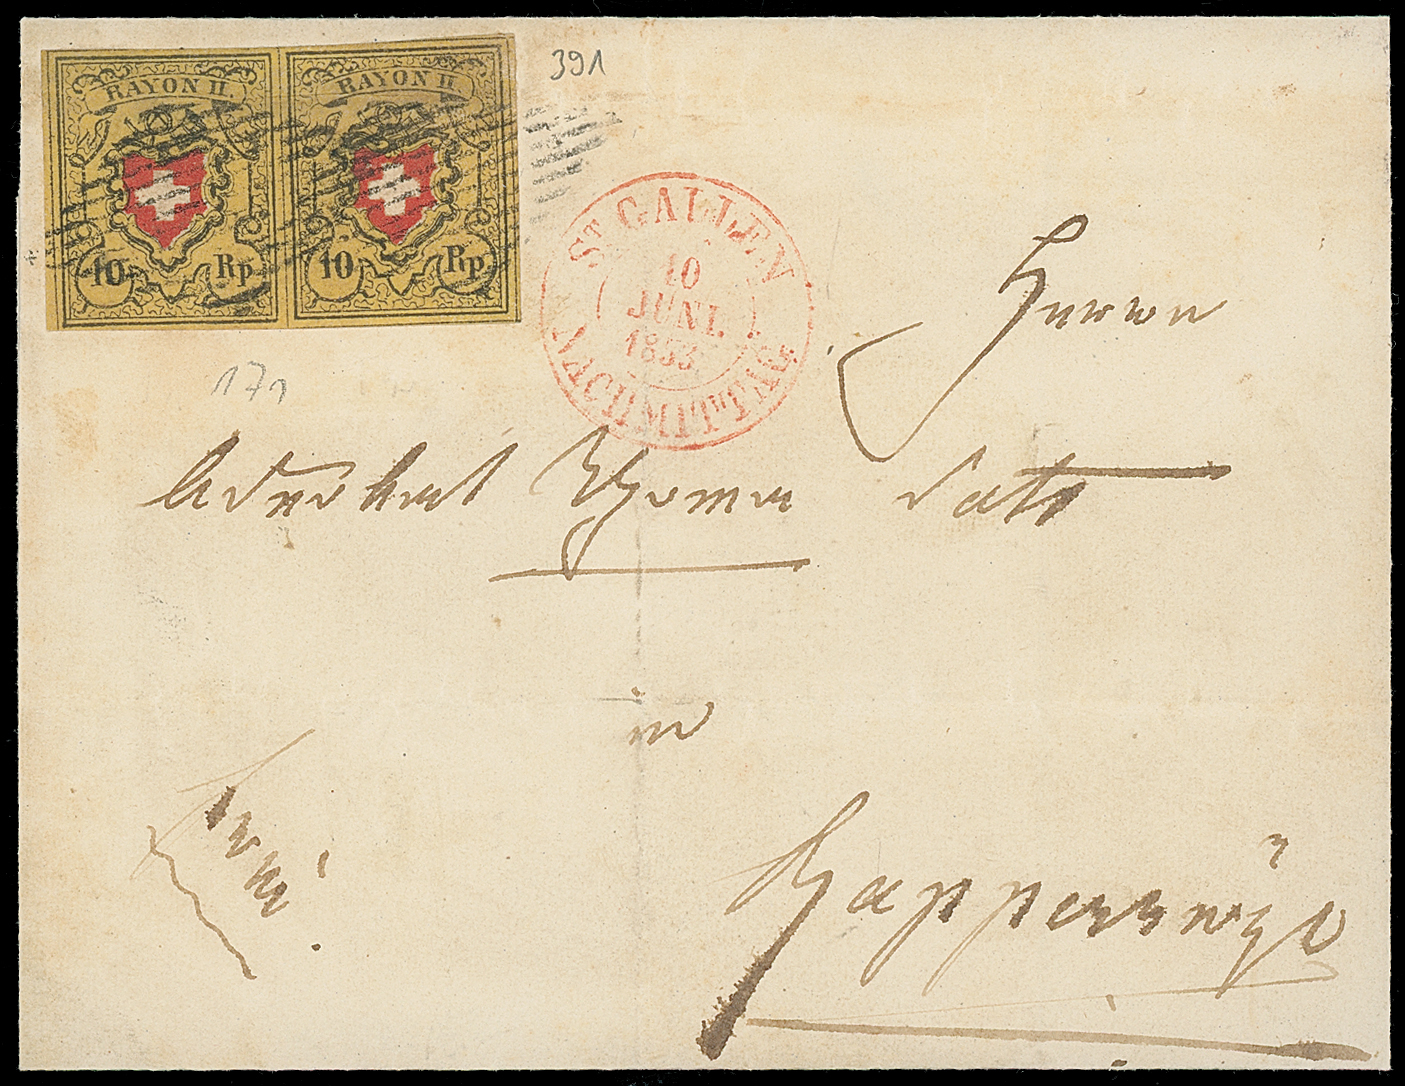 RAYON II. RAYON II.
10 Rp. 10 Rp.
391
ST GALLEN
10
JUNI.
1853
NACHMITTAG
171
Herrn
Advokat
in
Rapperswyl
franco.